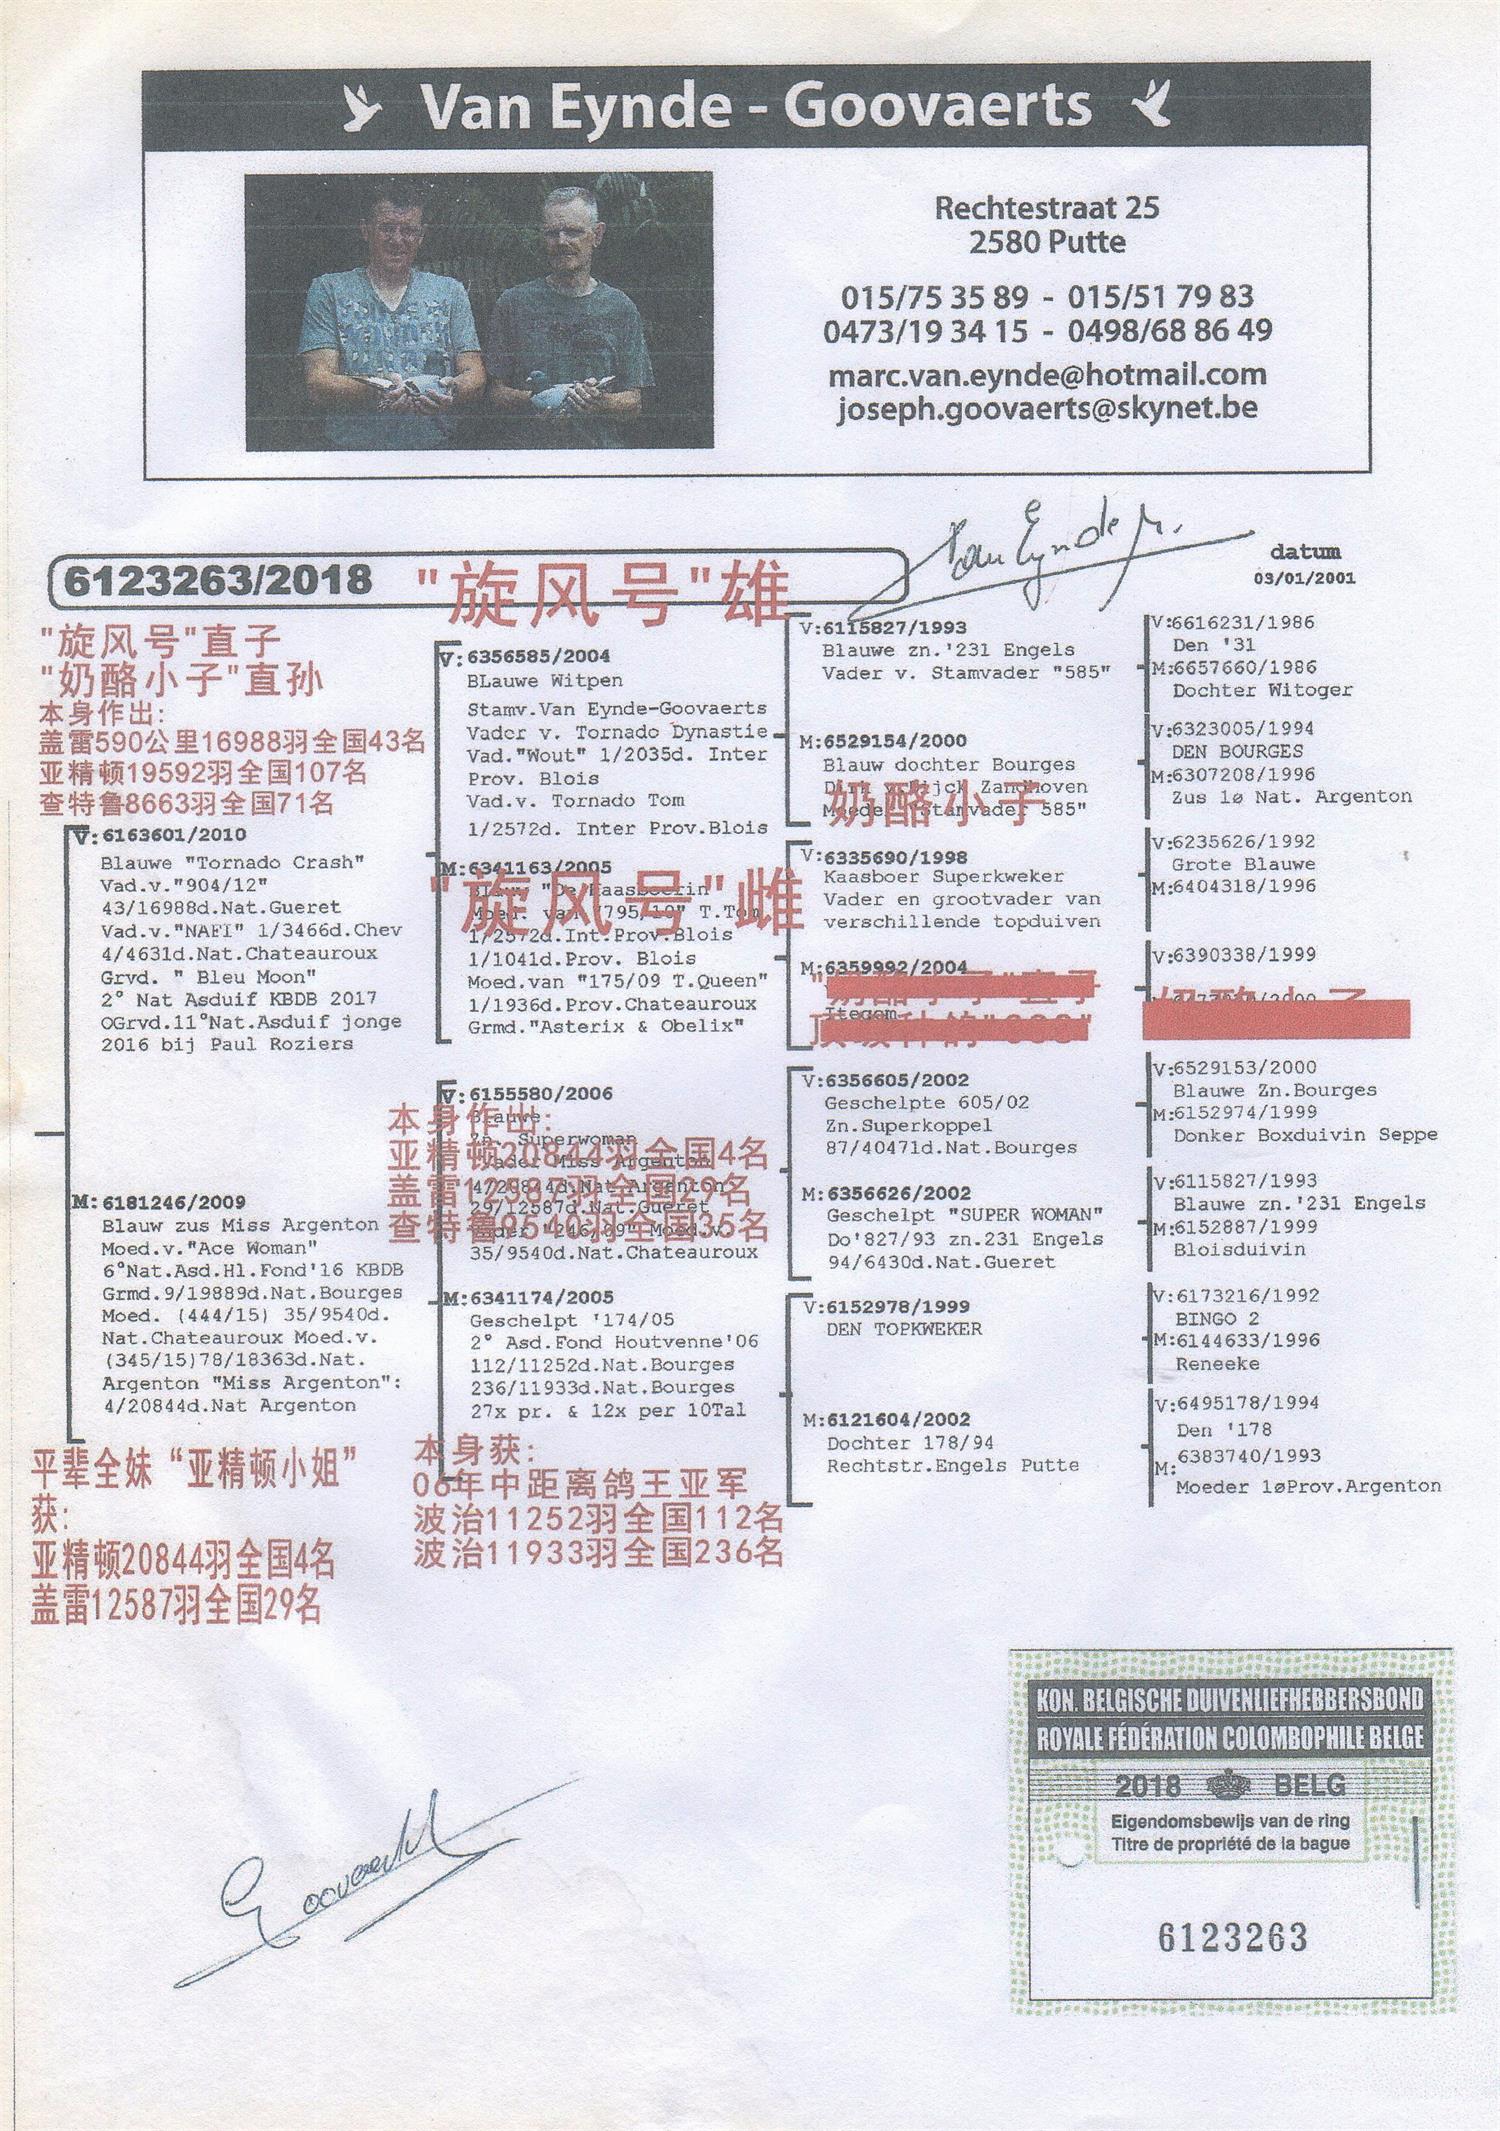 Van Eynde - Goovaerts
Rechtestraat 25
2580 Putte
015/75 35 89 - 015/51 79 83
0473/19 34 15 - 0498/68 86 49
marc.van.eynde@hotmail.com
joseph.goovaerts@skynet.be
Van Eynde M.
datum
03/01/2001
6123263/2018
"旋风号"雄
"旋风号"直子
"奶酪小子"直孙
本身作出:
盖雷590公里16988羽全国43名
亚精顿19592羽全国107名
查特鲁8663羽全国71名
V: 6163601/2010
Blauwe "Tornado Crash"
Vad.v."904/12"
43/16988d.Nat.Gueret
Vad.v."NAFI" 1/3466d.Chev
4/4631d.Nat.Chateauroux
Grvd. " Bleu Moon"
2° Nat Asduif KBDB 2017
OGrvd.11°Nat.Asduif jonge
2016 bij Paul Roziers
M: 6181246/2009
Blauw zus Miss Argenton
Moed.v."Ace Woman"
6°Nat.Asd.Hl.Fond'16 KBDB
Grmd.9/19889d.Nat.Bourges
Moed. (444/15) 35/9540d.
Nat.Chateauroux Moed.v.
(345/15)78/18363d.Nat.
Argenton "Miss Argenton":
4/20844d.Nat Argenton
平辈全妹“亚精顿小姐”
获:
亚精顿20844羽全国4名
盖雷12587羽全国29名
V: 6356585/2004
BLauwe Witpen
Stamv.Van Eynde-Goovaerts
Vader v. Tornado Dynastie
Vad."Wout" 1/2035d. Inter
Prov. Blois
Vad.v. Tornado Tom
1/2572d. Inter Prov.Blois
M:6341163/2005
"旋风号"雌
Blauw "De Kaasboerin
Moed. van "795/10" T.Tom
1/2572d.Int.Prov.Blois
1/1041d.Prov. Blois
Moed.van "175/09 T.Queen"
1/1936d.Prov.Chateauroux
Grmd."Asterix & Obelix"
V: 6155580/2006
本身作出:
Blauwe
Zn. Superwoman
亚精顿20844羽全国4名
Vader Miss Argenton
4/20844d.Nat Argenton
盖雷12587羽全国29名
29/12587d.Nat.Gueret
查特鲁9540羽全国35名
35/9540d.Nat.Chateauroux
M:6341174/2005
Geschelpt '174/05
2° Asd.Fond Houtvenne'06
112/11252d.Nat.Bourges
236/11933d.Nat.Bourges
27x pr. & 12x per 10Tal
本身获:
06年中距离鸽王亚军
波治11252羽全国112名
波治11933羽全国236名
V:6115827/1993
Blauwe zn.'231 Engels
Vader v. Stamvader "585"
M:6529154/2000
Blauw dochter Bourges
奶酪小子
Stamvader 585"
V:6335690/1998
Kaasboer Superkweker
Vader en grootvader van
verschillende topduiven
M:6359992/2004
Itegem
V:6356605/2002
Geschelpte 605/02
Zn.Superkoppel
87/40471d.Nat.Bourges
M:6356626/2002
Geschelpt "SUPER WOMAN"
Do'827/93 zn.231 Engels
94/6430d.Nat.Gueret
V:6152978/1999
DEN TOPKWEKER
M:6121604/2002
Dochter 178/94
Rechtstr.Engels Putte
V:6616231/1986
Den '31
M:6657660/1986
Dochter Witoger
V:6323005/1994
DEN BOURGES
M:6307208/1996
Zus 1ø Nat. Argenton
V:6235626/1992
Grote Blauwe
M:6404318/1996
V:6390338/1999
V:6529153/2000
Blauwe Zn.Bourges
M:6152974/1999
Donker Boxduivin Seppe
V:6115827/1993
Blauwe zn.'231 Engels
M:6152887/1999
Bloisduivin
V:6173216/1992
BINGO 2
M:6144633/1996
Reneeke
V:6495178/1994
Den '178
M:6383740/1993
Moeder 1øProv.Argenton
KON. BELGISCHE DUIVENLIEFHEBBERSBOND
ROYALE FÉDÉRATION COLOMBOPHILE BELGE
2018 BELG
Eigendomsbewijs van de ring
Titre de propriété de la bague
6123263
Goovaerts